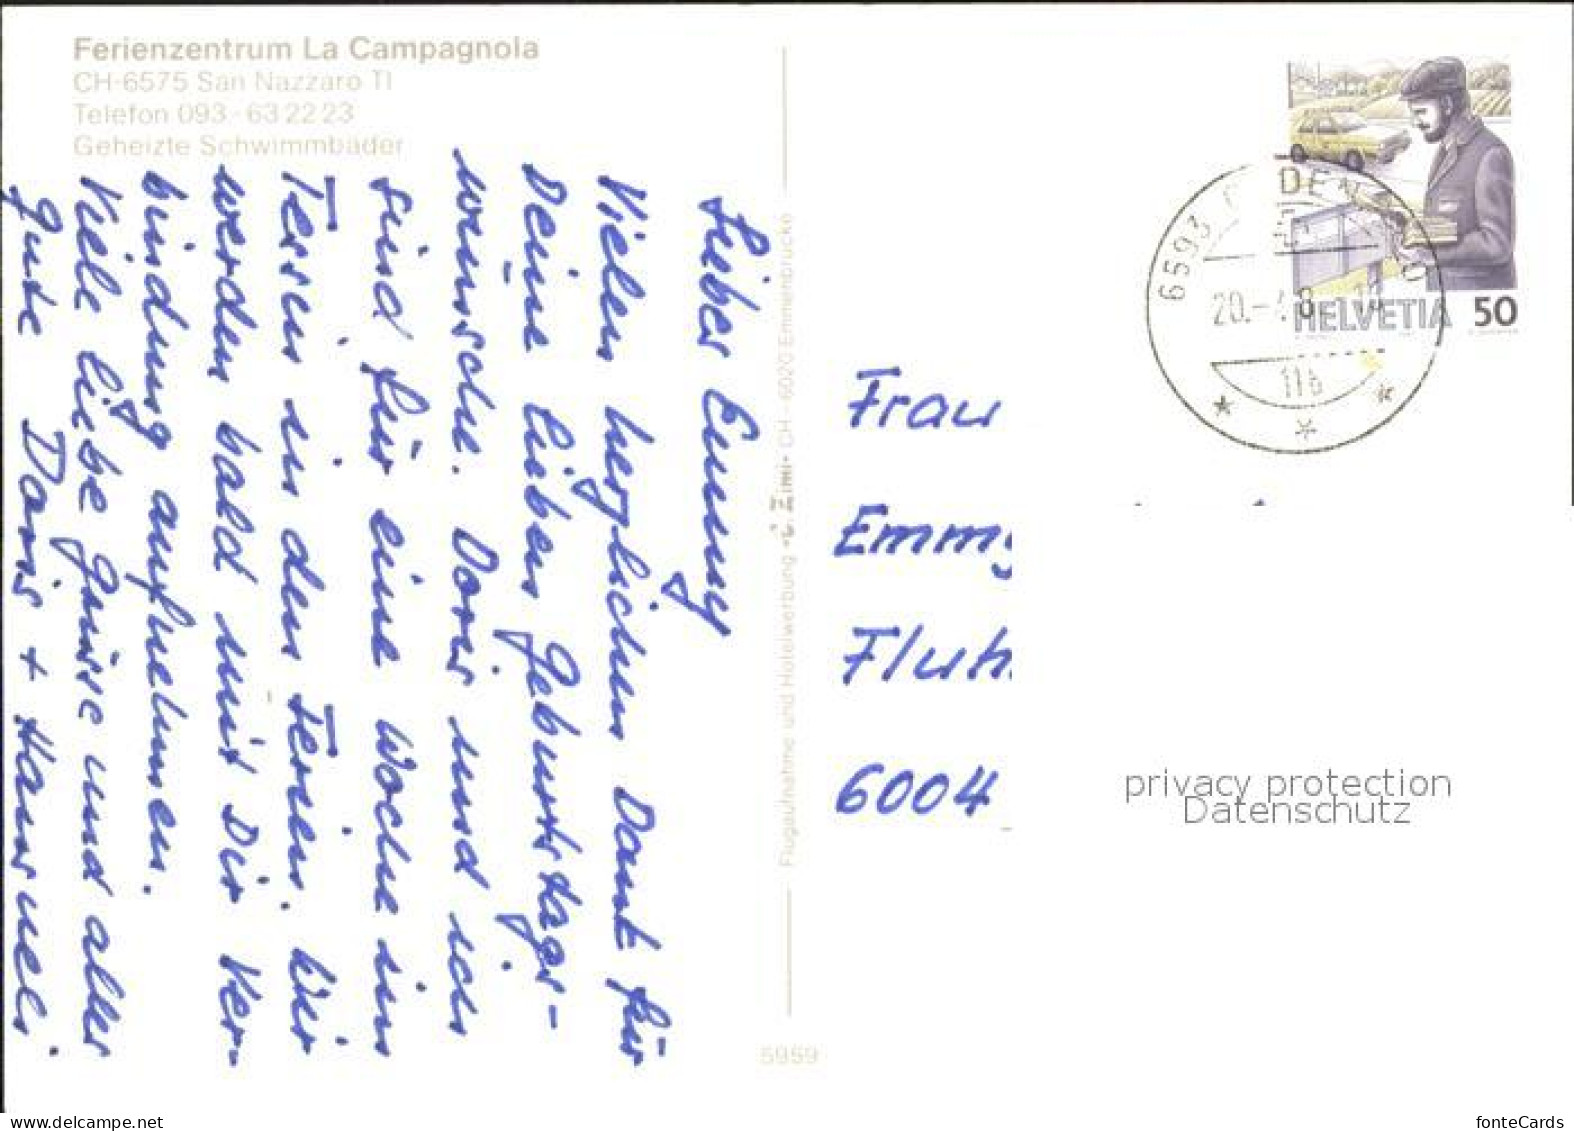 Ferienzentrum La Campagnola
CH-6575 San Nazzaro TI
Telefon 093-63 22 23
Geheizte Schwimmbäder
Lieber Emmy
Vielen herzlichen Dank für
Deine lieben Geburtstags-
wünsche. Doris und ich
sind für eine Woche im
Tessin in den Ferien. Wir
werden bald mit Dir Ver-
bindung aufnehmen.
Viele liebe Grüsse und alles
Gute Doris + Hansueli
Flugaufnahme und Hotelwerbung CH-6020 Emmenbrücke
5959
6593
20.-
11b
HELVETIA 50
Frau
Emmy
Fluh
6004
privacy protection
Datenschutz
www.delcampe.net
fonteCards